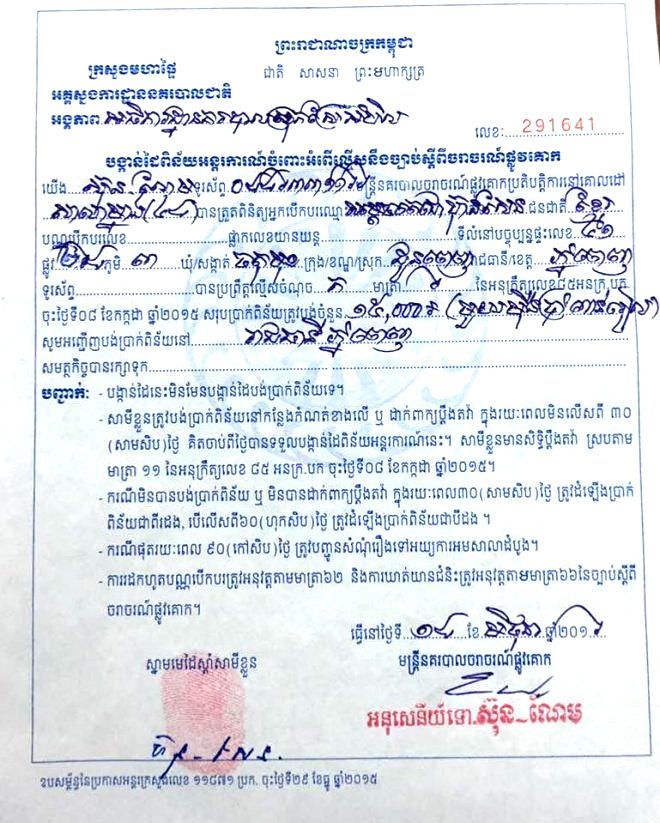 ព្រះរាជាណាចក្រកម្ពុជា
ជាតិ សាសនា ព្រះមហាក្សត្រ
ក្រសួងមហាផ្ទៃ
អគ្គស្នងការដ្ឋាននគរបាលជាតិ
អង្គភាព
លេខ: 291641
បង្កាន់ដៃពិន័យអន្តរការណ៍ចំពោះអំពើល្មើសនឹងច្បាប់ស្តីពីចរាចរណ៍ផ្លូវគោក
យើង ស៊ុន ណែម ទូរស័ព្ទ មន្ត្រីនគរបាលចរាចរណ៍ផ្លូវគោកប្រតិបត្តិការនៅគោលដៅ
បានត្រួតពិនិត្យអ្នកបើកបរឈ្មោះ ជនជាតិ ខ្មែរ
បណ្ណបើកបរលេខ ផ្លាកលេខយានយន្ត ទីលំនៅបច្ចុប្បន្នផ្ទះលេខ
ផ្លូវ ភូមិ ៣ ឃុំ/សង្កាត់ ក្រុង/ខណ្ឌ/ស្រុក ដូនពេញ រាជធានី/ខេត្ត ភ្នំពេញ
ទូរស័ព្ទ បានប្រព្រឹត្តល្មើសចំណុច ក មាត្រា នៃអនុក្រឹត្យលេខ៨៥អនក្រ.បក
ចុះថ្ងៃទី០៨ ខែកក្កដា ឆ្នាំ២០១៥ សរុបប្រាក់ពិន័យត្រូវបង់ចំនួន ១៥,០០០៛ (មួយម៉ឺនប្រាំពាន់រៀល)
សូមអញ្ជើញបង់ប្រាក់ពិន័យនៅ រាជធានីភ្នំពេញ
សមត្ថកិច្ចបានរក្សាទុក
បញ្ជាក់: - បង្កាន់ដៃនេះមិនមែនបង្កាន់ដៃបង់ប្រាក់ពិន័យទេ។
- សាមីខ្លួនត្រូវបង់ប្រាក់ពិន័យនៅកន្លែងកំណត់ខាងលើ ឬ ដាក់ពាក្យប្តឹងតវ៉ា ក្នុងរយៈពេលមិនលើសពី ៣០
(សាមសិប)ថ្ងៃ គិតចាប់ពីថ្ងៃបានទទួលបង្កាន់ដៃពិន័យអន្តរការណ៍នេះ។ សាមីខ្លួនមានសិទ្ធិប្តឹងតវ៉ា ស្របតាម
មាត្រា ១១ នៃអនុក្រឹត្យលេខ ៨៥ អនក្រ.បក ចុះថ្ងៃទី០៨ ខែកក្កដា ឆ្នាំ២០១៥។
- ករណីមិនបានបង់ប្រាក់ពិន័យ ឬ មិនបានដាក់ពាក្យប្តឹងតវ៉ា ក្នុងរយៈពេល៣០(សាមសិប)ថ្ងៃ ត្រូវដំឡើងប្រាក់
ពិន័យជាពីរដង, បើលើសពី៦០(ហុកសិប)ថ្ងៃ ត្រូវដំឡើងប្រាក់ពិន័យជាបីដង ។
- ករណីផុតរយៈពេល ៩០(កៅសិប)ថ្ងៃ ត្រូវបញ្ជូនសំណុំរឿងទៅអយ្យការអមសាលាដំបូង។
- ការដកហូតបណ្ណបើកបរត្រូវអនុវត្តតាមមាត្រា៦២ និងការឃាត់យានជំនិះត្រូវអនុវត្តតាមមាត្រា៦៦នៃច្បាប់ស្តីពី
ចរាចរណ៍ផ្លូវគោក។
ធ្វើនៅថ្ងៃទី ១៤ ខែ មិថុនា ឆ្នាំ២០១
ស្នាមមេដៃស្តាំសាមីខ្លួន
មន្ត្រីនគរបាលចរាចរណ៍ផ្លូវគោក
អនុសេនីយ៍ទោ.ស៊ុន-ណែម
ឧបសម្ព័ន្ធនៃប្រកាសអន្តរក្រសួងលេខ ១១៨៧១ ប្រក. ចុះថ្ងៃទី២៩ ខែធ្នូ ឆ្នាំ២០១៥